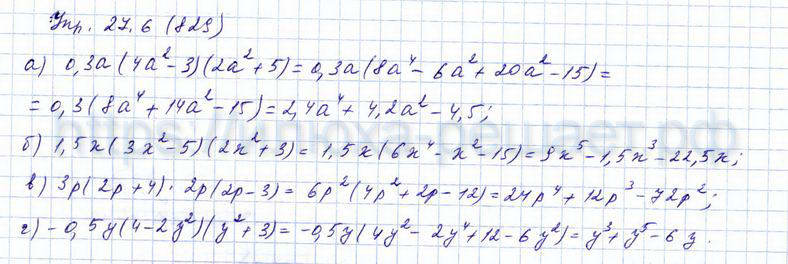 Упр. 27.6 (829)
а) 0,3a(4a²-3)(2a²+5)=0,3a(8a⁴-6a²+20a²-15)=
=0,3(8a⁴+14a²-15)=2,4a⁴+4,2a²-4,5;
б) 1,5x(3x²-5)(2x²+3)=1,5x(6x⁴-x²-15)=9x⁵-1,5x³-22,5x;
в) 3p(2p+4)·2p(2p-3)=6p²(4p²+2p-12)=24p⁴+12p³-72p²;
г) -0,5y(4-2y²)(y²+3)=-0,5y(4y²-2y⁴+12-6y²)=y³+y⁵-6y.